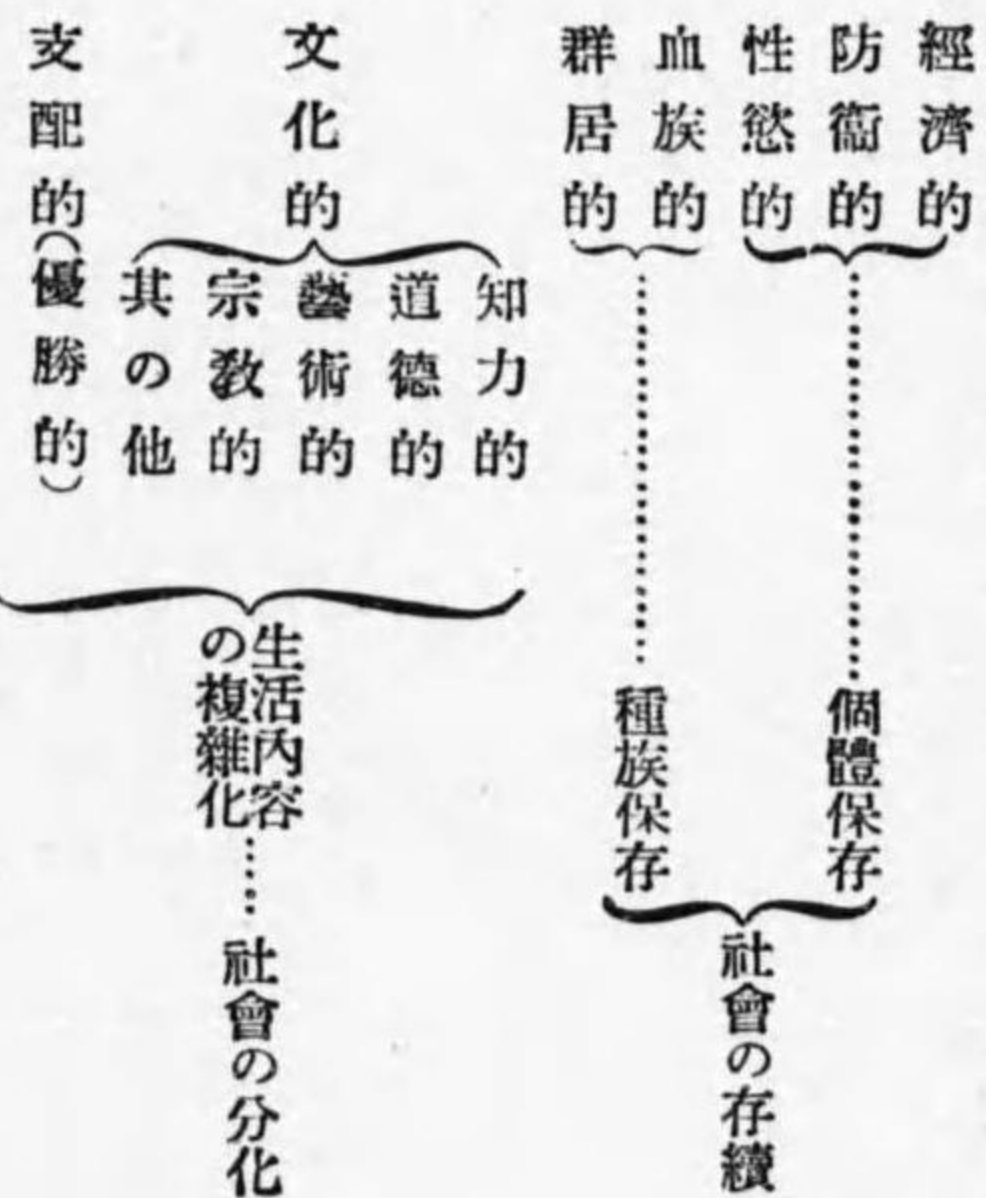 經濟的
防衞的
性慾的
血族的
群居的
個體保存
種族保存
社會の存續
文化的
知力的
道德的
藝術的
宗敎的
其の他
支配的(優勝的)
生活內容
の複雜化
社會の分化